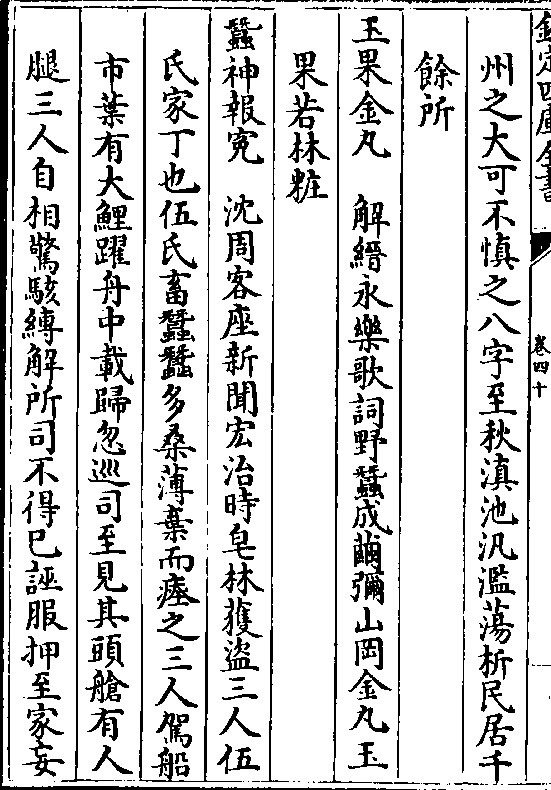 欽定四庫全書
卷四十
州之大可不慎之八字至秋滇池汎濫蕩析民居千
餘所
玉果金丸　解縉永樂歌詞野蠶成繭彌山岡金丸玉
果若林粧
蠶神報寃　沈周客座新聞宏治時皂林獲盜三人伍
氏家丁也伍氏畜蠶蠶多桑薄棄而瘞之三人駕船
市葉有大鯉躍舟中載歸忽巡司至見其頭艙有人
腿三人自相驚駭縛解所司不得已誣服押至家妄